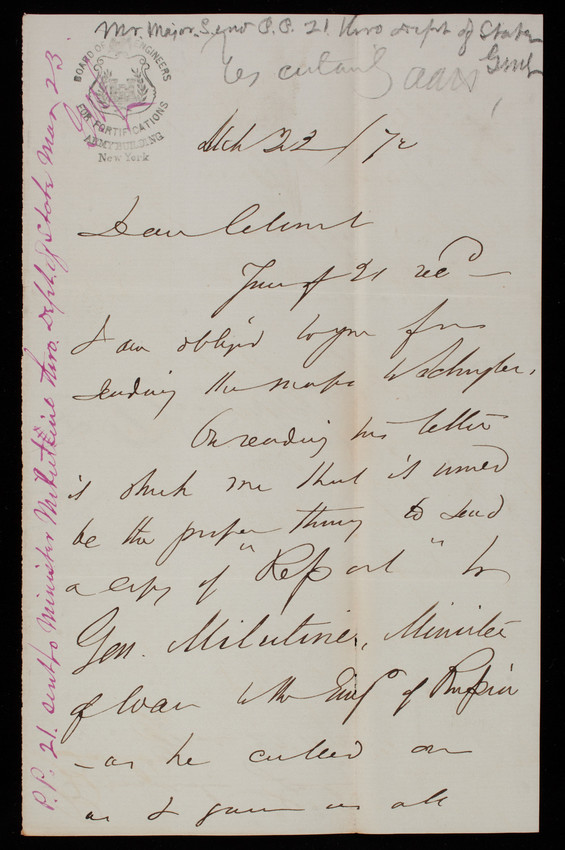 Mr. Major. Send P. P. 21. thro dept of State
Genl
BOARD OF ENGINEERS
FOR FORTIFICATIONS
ARMY BUILDING
New York
Mch 22/72
Dear Colonel
Yours of 21 recd —
I am obliged to you for
sending the maps to Schuyler.
On reading his letter
it struck me that it would
be the proper thing to send
a copy of "Report" to
Gen. Milutine, Minister
of War to the Emp of Russia
- as he called on
us & gave us all
P. P. 21. sent to Minister Milutine thro. Dept. of State Mar 23